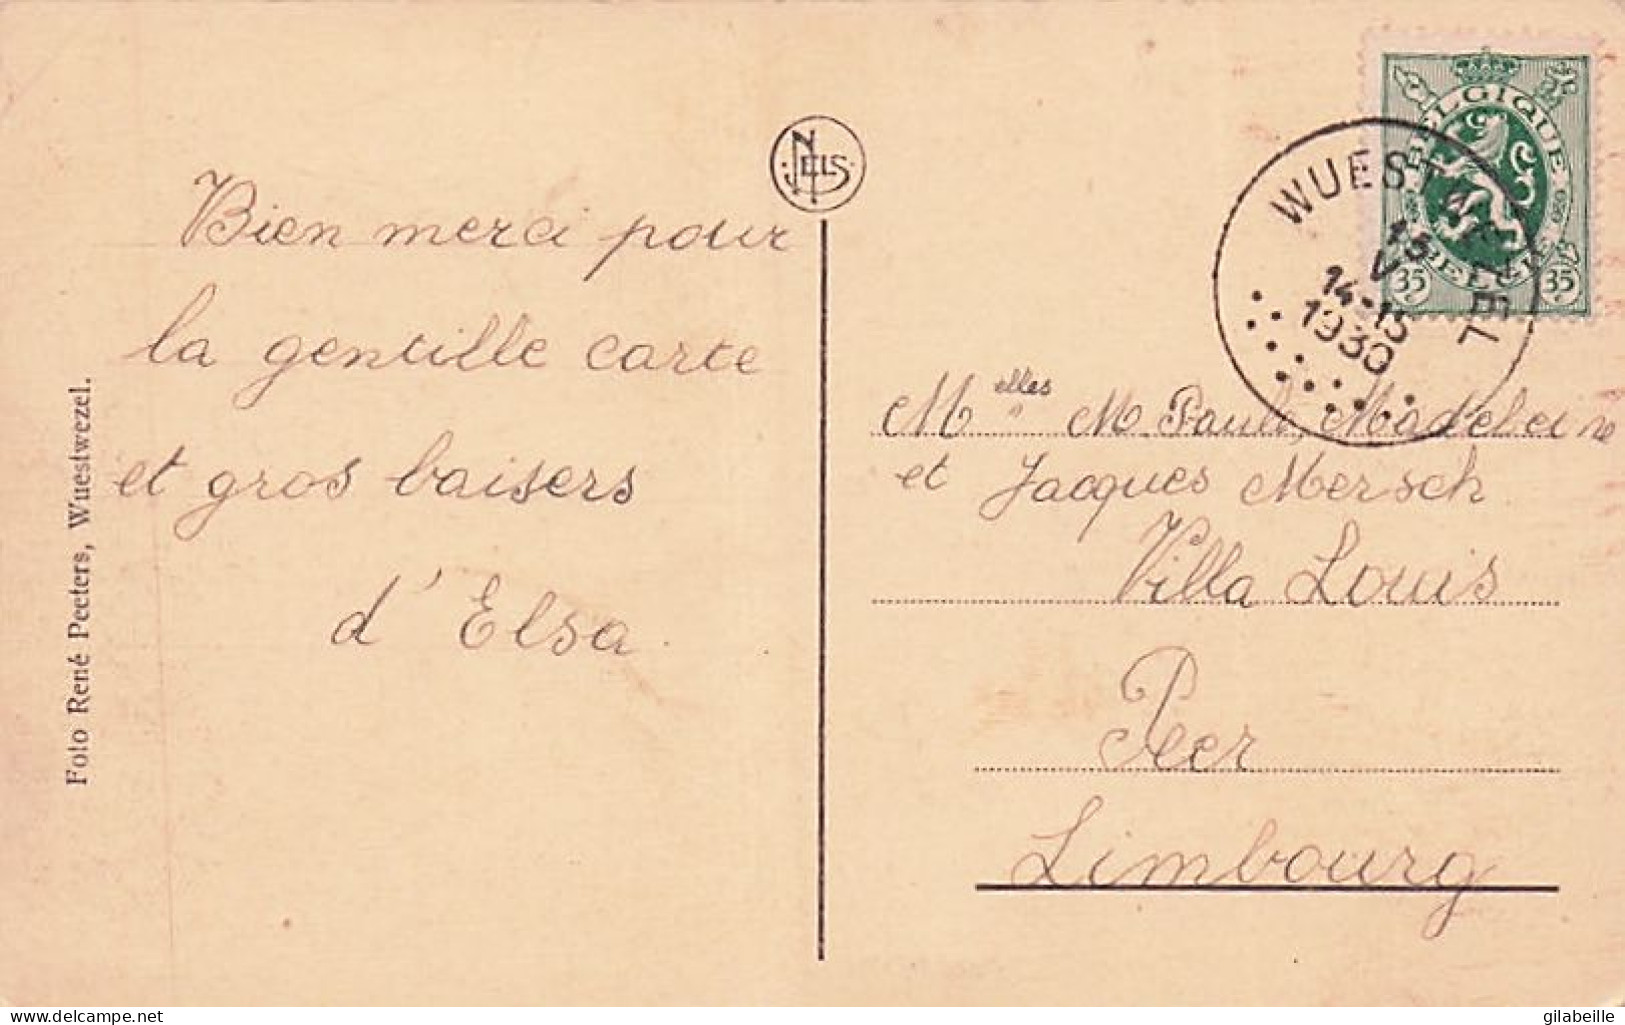 Bien merci pour
la gentille carte
et gros baisers
d'Elsa.
Foto René Peeters, Wuestwezel.
NELS
BELGIQUE
BELGIË
35 35
WUESTWEZEL
15
V
14-15
1930
Melles M. Paule, Madeleine
et Jacques Mersch
Villa Louis
Peer
Limbourg
www.delcampe.net
gilabeille